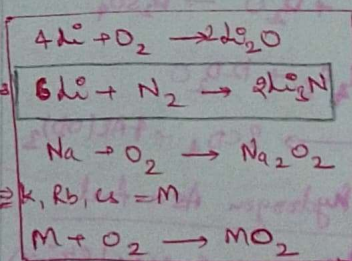 4Li + O₂ → 2Li₂O
6Li + N₂ → 2Li₃N
Na + O₂ → Na₂O₂
⇒ K, Rb, Cs = M
M + O₂ → MO₂